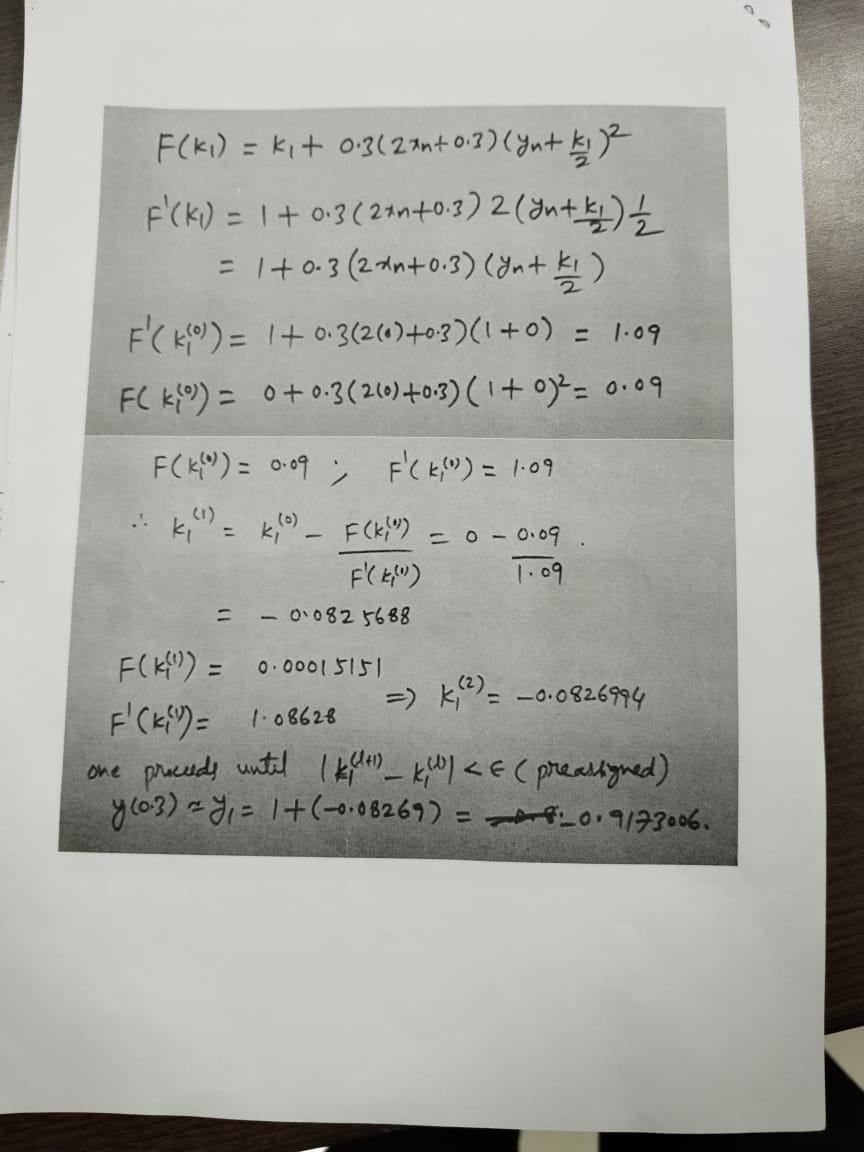 F(k₁) = k₁ + 0.3(2xn+0.3)(yn+k₁/2)²
F'(k₁) = 1 + 0.3(2xn+0.3) 2 (yn+k₁/2) 1/2
= 1 + 0.3(2xn+0.3)(yn+k₁/2)
F'(k₁⁽⁰⁾) = 1 + 0.3(2(0)+0.3)(1+0) = 1.09
F(k₁⁽⁰⁾) = 0 + 0.3(2(0)+0.3)(1+0)² = 0.09
F(k₁⁽⁰⁾) = 0.09 ; F'(k₁⁽⁰⁾) = 1.09
∴ k₁⁽¹⁾ = k₁⁽⁰⁾ - F(k₁⁽⁰⁾)/F'(k₁⁽⁰⁾) = 0 - 0.09/1.09 .
= - 0.0825688
F(k₁⁽¹⁾) = 0.00015151
F'(k₁⁽¹⁾) = 1.08628 ⇒ k₁⁽²⁾ = -0.0826994
one proceeds until |k₁⁽ˡ⁺¹⁾ - k₁⁽ˡ⁾| < ϵ (preassigned)
y(0.3) ≈ y₁ = 1+(-0.08269) = -0.9173006.